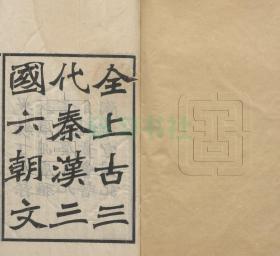 全上古三
代秦漢三
國六朝文